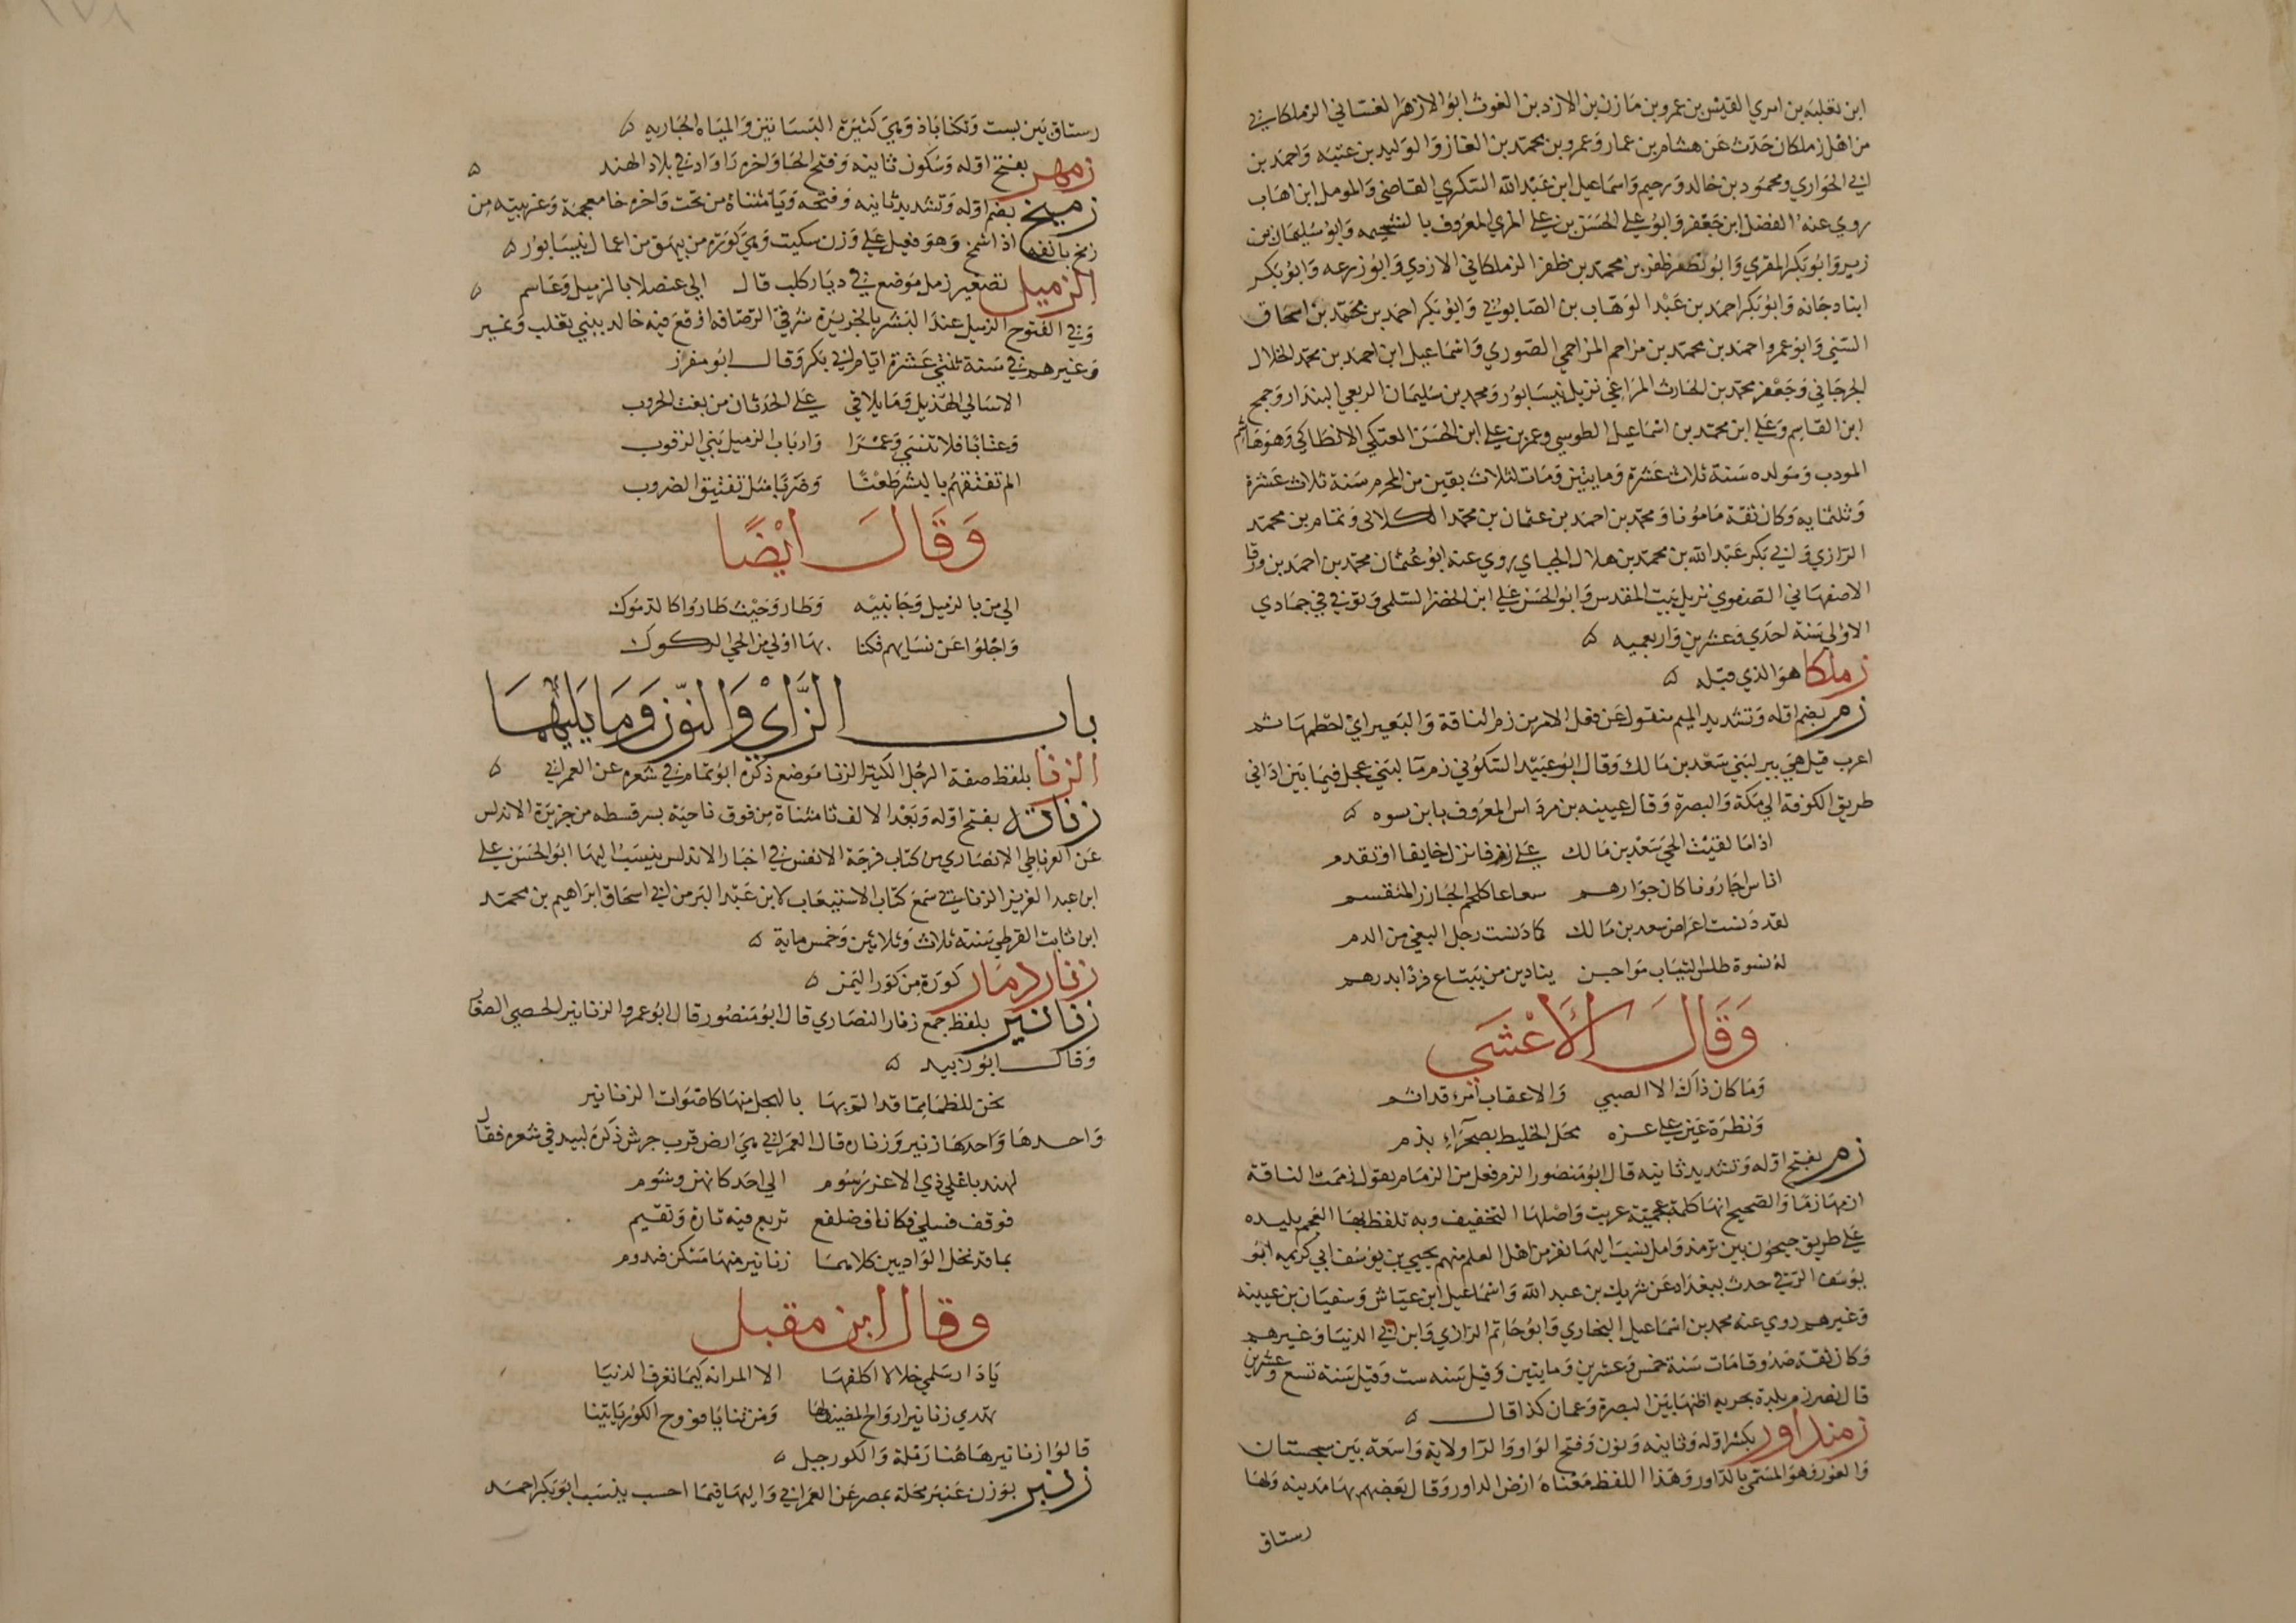 ابن ثعلبة بن امري القيس بن عمرو بن مازن بن الازد بن الغوث ابو الازهر الغساني الزملكاني
من اهل زملكان حدث عن هشام بن عمار وعمرو بن محمد بن الغاز والوليد بن عتبه واحمد بن
ابي الحواري ومحمود بن خالد ورحيم واسماعيل ابن عبد الله السكري القاضي والمومل ابن اهاب
روي عنه الفضل ابن جعفر وابو علي الحسن بن علي المري المعروف بالشحيمه وابو سليمان بن
زبر وابو بكر المقري وابو مظفر بن محمد بن ظفر الزملكاني الازدي وابو زرعه وابو بكر
ابنا دجانه وابو بكر احمد بن عبد الوهاب بن الصابوني وابو بكر احمد بن محمد بن اسحاق
السني وابو عمرو احمد بن محمد بن مزاحم المزاحمي الصوري واسماعيل ابن احمد بن محمد الخلال
الجرجاني وجعفر محمد بن الحارث المراغي نزيل نيسابور ومحمد بن سليمان الربعي البندار وجمح
ابن القاسم وعلي ابن محمد بن اسماعيل الطوسي وعمر بن علي ابن الحسن العتكي الانطاكي وهو هاشم
المودب ومولده سنة ثلاث عشرة ومايتين ومات لثلاث بقين من المحرم سنة ثلاث عشرة
وثلثمايه وكان ثقة مامونا ومحمد بن احمد بن عثمان بن محمد الكلابي وتمام بن محمد
الرازي وابي بكر عبد الله بن محمد بن هلال الجباي روي عنه ابو عثمان محمد بن احمد بن ورقا
الاصفهاني الصفوي نزيل بيت المقدس وابو الحسن علي ابن الخضر السلمي وتوفي في جمادي
الاولي سنة احدي وعشرين واربعميه ٥
زملكا هو الذي قبله ٥
زم بضم اوله وتشديد الميم منقول عن فعل الامر من زم الناقة والبعير اي اخطمها ثم
اعرب قيل هي بير لبني سعد بن مالك وقال ابو عبيد السكوني زم ما لبني عجل فيما بين اداني
طريق الكوفة الي مكة والبصرة وقال عيينه بن مرداس المعروف بابن نسوه ٥
اذا ما لقيت الحي سعد بن مالك علي زم فانزل خايفا او تقدم
اناس اجارونا فكان جوارهم سعاعا كلحم الجازر المتقسم
لقد دنست اعراض سعد بن مالك كما دنست رجل البغي من الدم
له نسوة طلس الثياب مواجن ينادين من يبتاع فردا بدرهم
وقال الاعشي
وما كان ذاك الا الصبي والا عقاب امرء قد اثم
ونظرة عين علي عزه محل الخليط بصحراء بذم
زم بفتح اوله وتشديد ثانيه قال ابو منصور الزم فعل من الزمام يقول زممت الناقة
ازمها زما والصحيح انها كلمة عجمية عربت واصلها التخفيف وبه تلفظ بها العجم بليده
علي طريق جيحون بين ترمذ وامل ينسب اليها نفر من اهل العلم منهم يحيي بن يوسف ابي كريمه ابو
يوسف الزمي حدث ببغداد عن شريك بن عبد الله واسماعيل ابن عياش وسفيان بن عيينه
وغيرهم روي عنه محمد بن اسماعيل البخاري وابو حاتم الرازي وابن ابي الدنيا وغيرهم
وكان ثقة صدوقا مات سنة خمس وعشرين ومايتين وقيل سنه ست وقيل سنة تسع وعشرين
قال نصر زم بلدة بحريه اظنها بين البصرة وعمان كذا قال ٥
زمنداور بكسر اوله وثانيه ونون وفتح الواو والرا ولاية واسعة بين سجستان
والغور وهو المسمي بالداور وهذا اللفظ معناه ارض الداور وقال بعضهم بها مدينه ولها
رستاق
رستاق بين بست وتكناباذ وهي كثيرة البساتين والمياه الجاريه ٥
زمهر بفتح اوله وسكون ثانيه وفتح الها واخره را واد في بلاد الهند ٥
زميخ بضم اوله وتشديد ثانيه وفتحه ويا مثناة من تحت واخره خا معجمة وعربيته من
زمخ بانفه اذا اشمخ وهو فعيل علي وزن سكيت وهي كورة من بيهق من اعمال نيسابور ٥
الزميل تصغير زمل موضع في ديار كلب قال الي عنصلا بالزميل وعاسم ٥
وفي الفتوح الزميل عند البشر بالجزيرة شرقي الرصافه اوقع فيه خالد ببني تغلب ونمير
وغيرهم في سنة ثلثي عشرة ايام ابي بكر وقال ابو مفزر
الا سالي الهذيل وما يلاقي علي الحدثان من بعث الحروب
وعتابا فلا تنسي وعمرا وارباب الزميل بني الرقوب
الم تفتقهم بالبشر طعنا وضربا مثل تفتيق الضروب
وقال ايضا
الي من بالزميل وجانبيه وطاروا حيث طاروا كالدموك
واجلوا عن نسايهم فكنا بها اولي من الحي الركوك
باب الزاي والنون وما يليهما
الزنا بلفظ صفة الرجل الكثير الزنا موضع ذكره ابو تمام في شعره عن العمراني ٥
زناته بفتح اوله وبعد الالف تا مثناة من فوق ناحية بسرقسطه من جزيرة الاندلس
عن الغرناطي الانصاري من كتاب فرحة الانفس في اخبار الاندلس ينسب اليها ابو الحسن علي
ابن عبد العزيز الزناتي سمع كتاب الاستيعاب لابن عبد البر من ابي اسحاق ابراهيم بن محمد
ابن ثابت القرطبي سنة ثلاث وثلاثين وخمس ماية ٥
زنار دمار كورة من كور اليمن ٥
زنانير بلفظ جمع زنار النصاري قال ابو منصور قال ابو عمرو الزنانير الحصي الصغار
وقال ابو زبيد ٥
نحن للظما مما قد الم بها بالهجل منها كاصوات الزنانير
واحدها واحدها زنير وزناره قال العمراني هي ارض قرب جرش ذكره لبيد في شعره فقال
لهند باعلي ذي الاغر رسوم الي احد كانهن وشوم
فوقف فسلي فاكناف ضلفع تربع فيه تارة وتقيم
بما قد تحل الواديين كلاهما زنانير منها مسكن فدوم
وقال ابن مقبل
يا دار سلمي خلا لا اكلفها الا المرانه كيما تعرف الدنيا
تهدي زنانير ارواح المصيف لها ومن ثنايا فروج الكور يايتنا
قالوا زنانير هاهنا رملة والكور جبل ٥
زنبر بوزن عنبر محلة بمصر عن العمراني واليها فيما احسب ينسب ابو بكر احمد